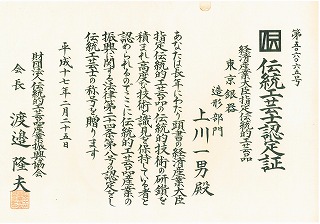 第五〇六〇六五号
伝統工芸士認定証
経済産業大臣指定伝統的工芸品
東京銀器
造形部門
上川一男殿
あなたは長年にわたり頭書の経済産業大臣
指定伝統的工芸品の伝統的技術の研鑽を
積まれ高度の技術・識見を保持している者と
認められるのでここに伝統的工芸品産業の
振興に関する法律第二十四条第八号の認定をし
伝統工芸士の称号を贈ります
平成十七年二月二十五日
財団法人伝統的工芸品産業振興協会
会長 渡邉隆夫